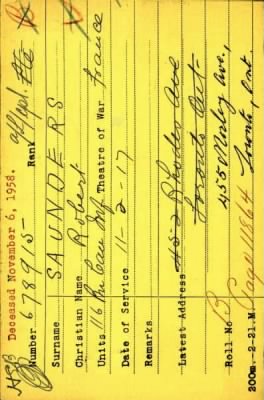 Deceased November 6, 1958.
Number 678915 Rank A/Cpl. Pte
Surname SAUNDERS
Christian Name Robert
Units 116 Bn Can Inf Theatre of War France
Date of Service 11-2-17
Remarks
Latest Address 45-2 Rhodes Ave
Toronto Ont-
455 Morley Ave.,
Toronto, Ont.
Roll No B Page 11864
200m.-2-21.M.